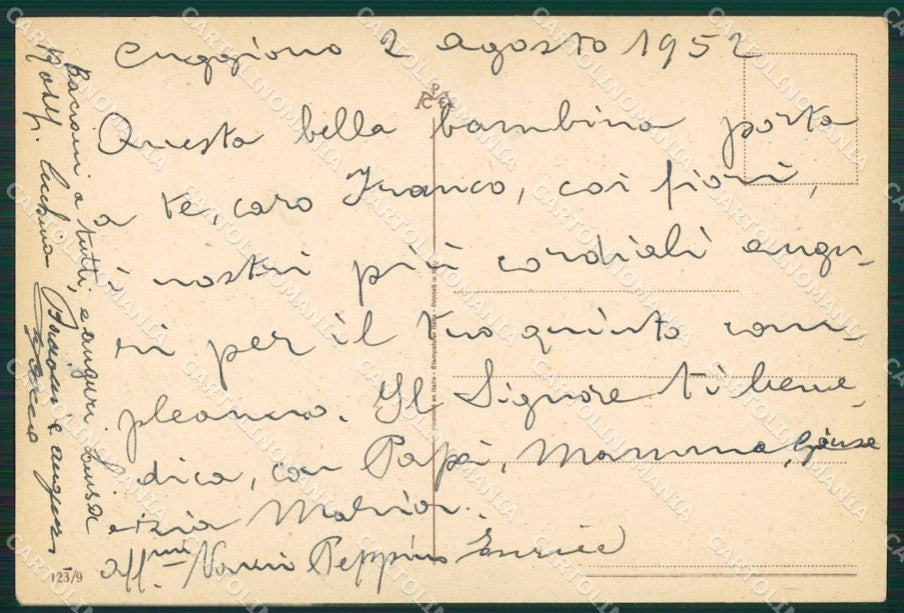 Cuggiono 2 agosto 1952
Questa bella bambina porta
a te, caro Franco, coi fiori,
i nostri più cordiali augu-
ri per il tuo quinto com-
pleanno. Il Signore ti bene-
dica, con Papà, Mamma,
e zia Maria.
aff.mi Nonni Peppino Enrico
Bacioni a tutti, e auguri Luisa
Bacioni e auguri
123/9
CARTOLINOMANIA